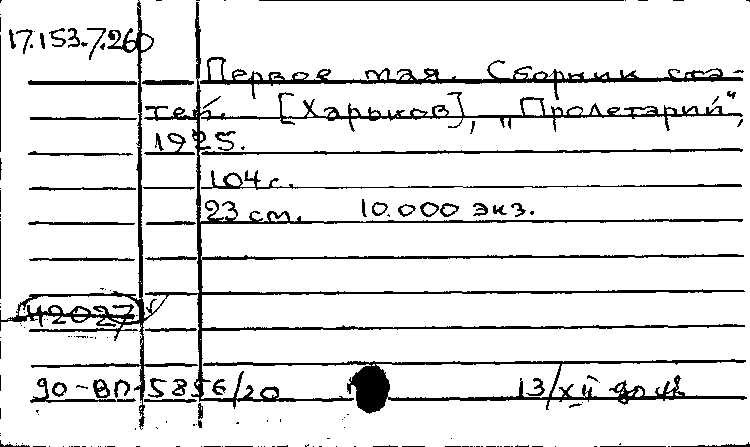 17.153.7.260
Первое мая. Сборник ста-
тей. [Харьков], „Пролетарий“,
1925.
104 с.
23 см. 10.000 экз.
42027
90-ВП-5856/20 13/XII